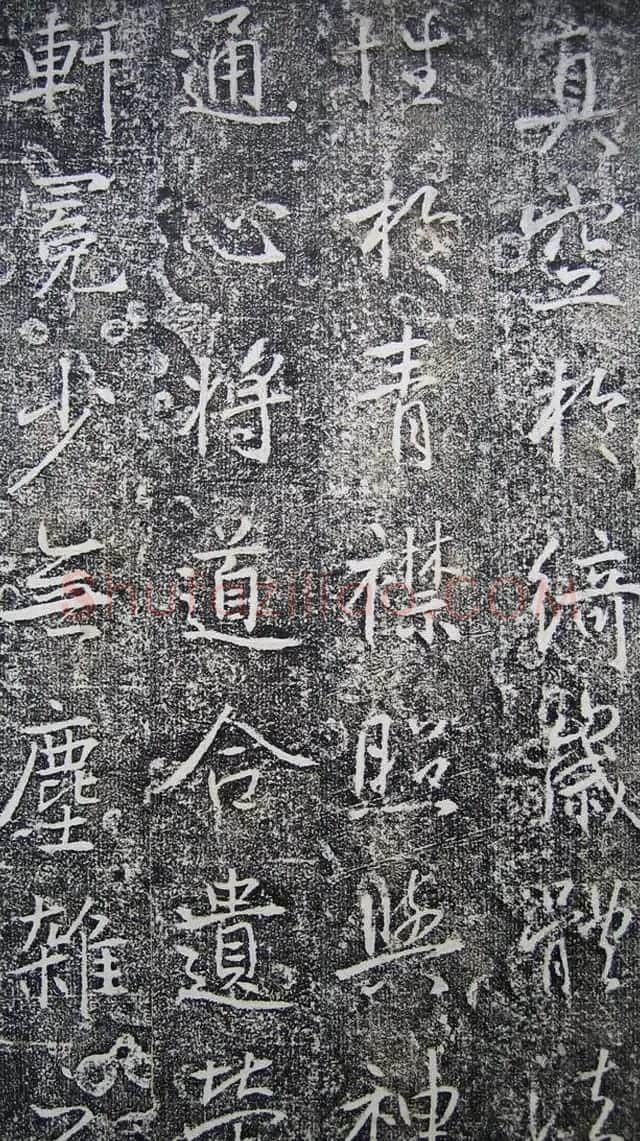 真空於綺歲體法
性於青襟照與神
通心将道合遺榮
軒冕少無塵雜
Shufaziliao.COM